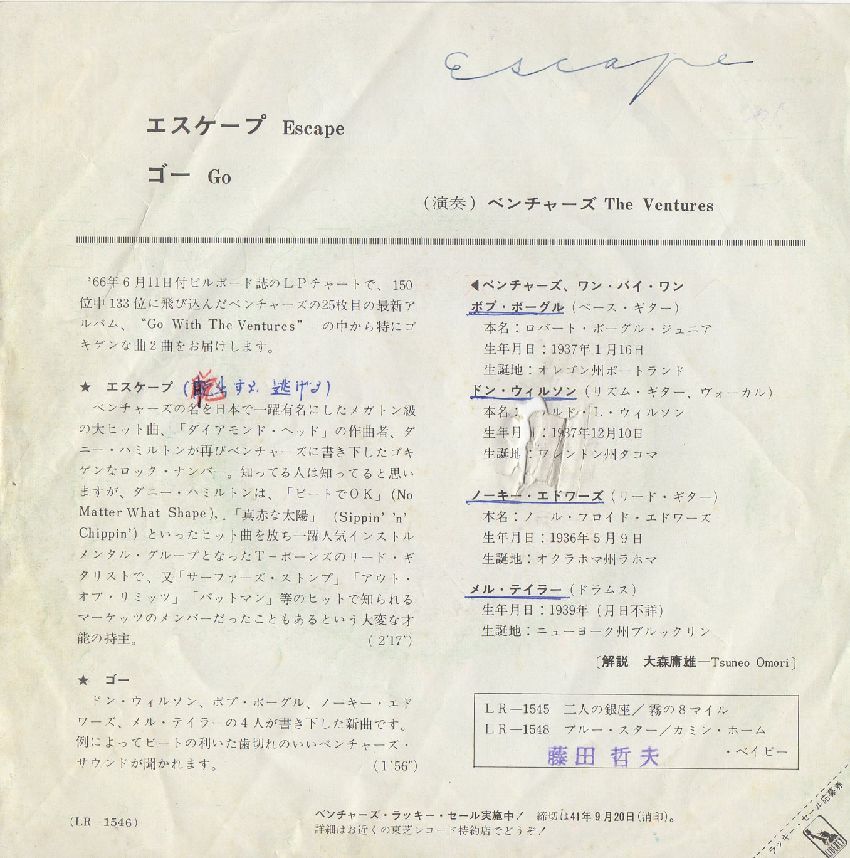 Escape
エスケープ Escape
ゴー Go
(演奏) ベンチャーズ The Ventures
'66年6月11日付ビルボード誌のLPチャートで、150
位中133位に飛び込んだベンチャーズの25枚目の最新ア
ルバム、“Go With The Ventures” の中から特にゴ
キゲンな曲2曲をお届けします。
★ エスケープ (脱出する、逃げる)
ベンチャーズの名を日本で一躍有名にしたメガトン級
の大ヒット曲、「ダイアモンド・ヘッド」の作曲者、ダ
ニー・ハミルトンが再びベンチャーズに書き下したゴキ
ゲンなロック・ナンバー。知ってる人は知ってると思い
ますが、ダニー・ハミルトンは、「ビートでOK」(No
Matter What Shape)、「真赤な太陽」 (Sippin' 'n'
Chippin') といったヒット曲を放ち一躍人気インストル
メンタル・グループとなったT-ボーンズのリード・ギ
タリストで、又「サーファーズ・ストンプ」「アウト・
オブ・リミッツ」「バットマン」等のヒットで知られる
マーケッツのメンバーだったこともあるという大変な才
能の持主。 (2'17")
★ ゴー
ドン・ウィルソン、ボブ・ボーグル、ノーキー・エド
ワーズ、メル・テイラーの4人が書き下した新曲です。
例によってビートの利いた歯切れのいいベンチャーズ・
サウンドが聞かれます。 (1'56")
◀ベンチャーズ、ワン・バイ・ワン
ボブ・ボーグル (ベース・ギター)
本名:ロバート・ボーグル・ジュニア
生年月日:1937年1月16日
生誕地:オレゴン州ポートランド
ドン・ウィルソン (リズム・ギター、ヴォーカル)
本名: ルド・L・ウィルソン
生年月日:1937年12月10日
生誕地:ワシントン州タコマ
ノーキー・エドワーズ (リード・ギター)
本名:ノール・フロイド・エドワーズ
生年月日:1936年5月9日
生誕地:オクラホマ州ラホマ
メル・テイラー (ドラムス)
生年月日:1939年 (月日不詳)
生誕地:ニューヨーク州ブルックリン
[解説 大森庸雄—Tsuneo Omori]
LR—1545 二人の銀座/霧の8マイル
LR—1548 ブルー・スター/カミン・ホーム
・ベイビー
藤田哲夫
(LR—1546)
ベンチャーズ・ラッキー・セール実施中! 締切は41年9月20日(消印)。
詳細はお近くの東芝レコード特約店でどうぞ!
ラッキー・セール応募券